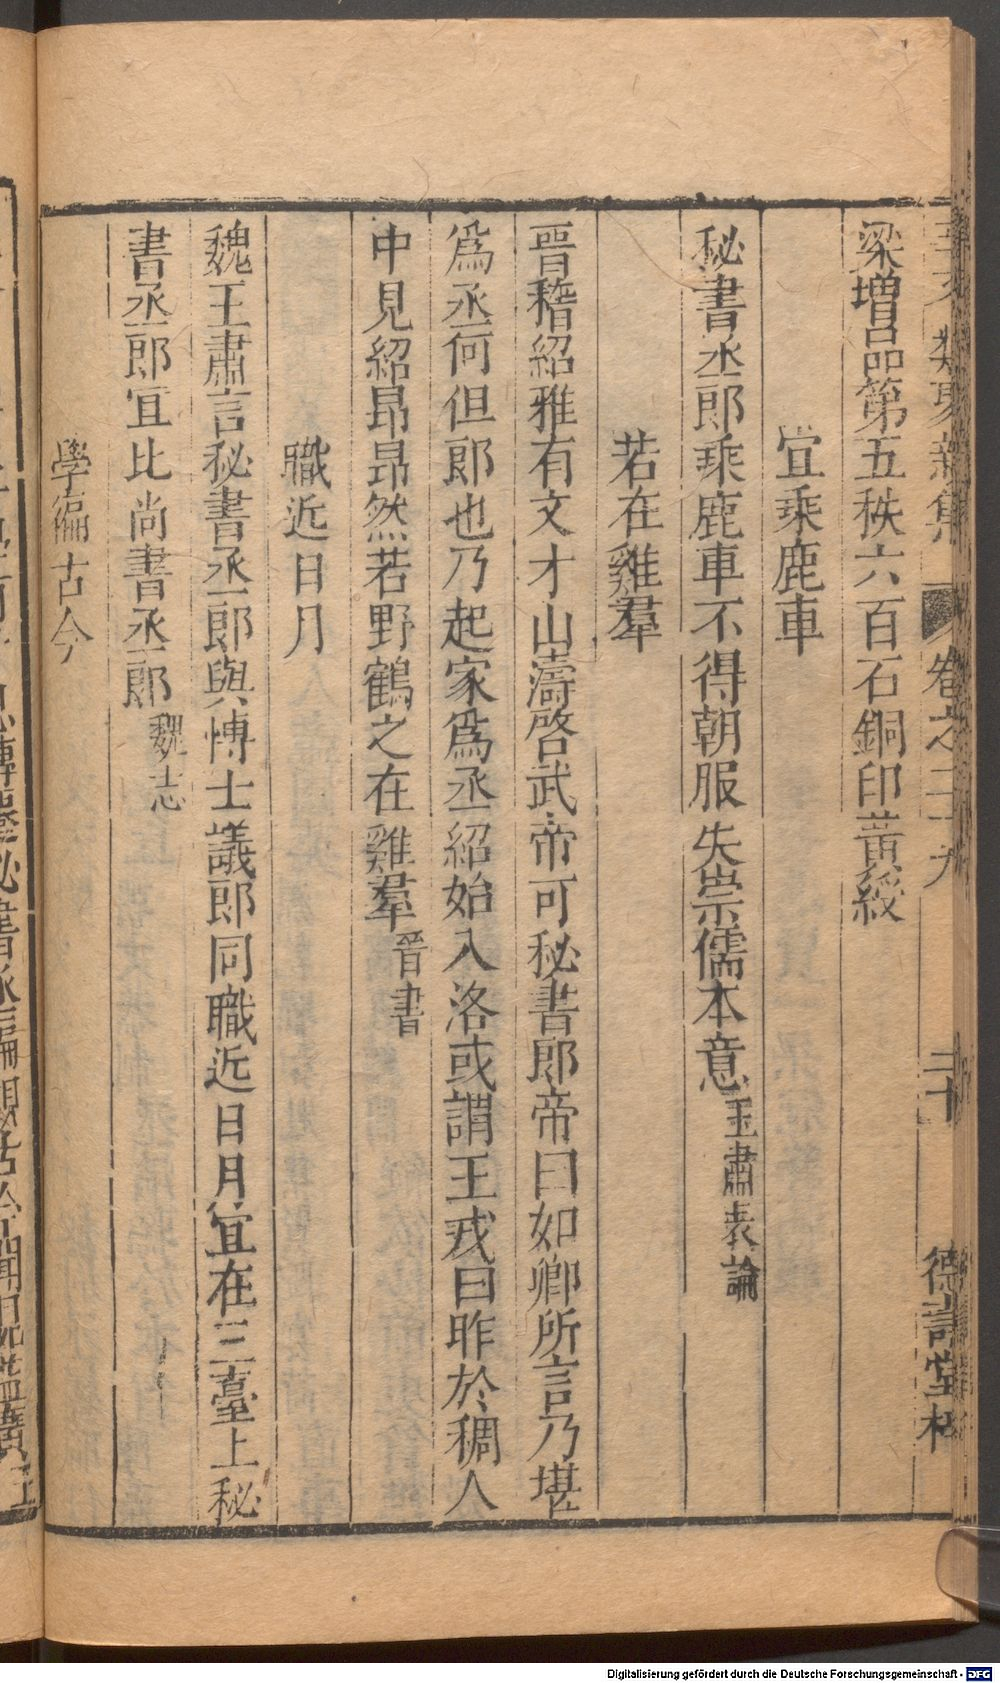 類聚新集 卷之二十九 二十 德壽堂梓
梁增品第五秩六百石銅印黃綬
宜乘鹿車
秘書丞郎乘鹿車不得朝服失崇儒本意王肅表論
若在雞羣
晉嵇紹雅有文才山濤啓武帝可秘書郎帝曰如卿所言乃堪
爲丞何但郎也乃起家爲丞紹始入洛或謂王戎曰昨於稠人
中見紹昂昂然若野鶴之在雞羣晉書
職近日月
魏王肅言秘書丞郎與博士議郎同職近日月宜在三臺上秘
書丞郎宜比尚書丞郎魏志
學編古今
Digitalisierung gefördert durch die Deutsche Forschungsgemeinschaft - DFG